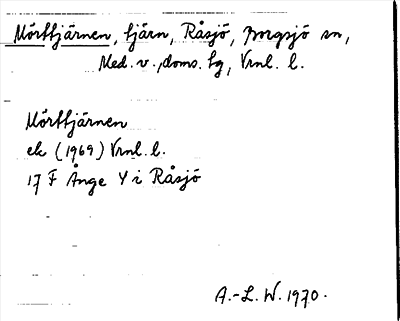 Mörttjärnen, tjärn, Råsjö, Borgsjö sn,
Med. v. doms. tg, Vrnl. l.
Mörttjärnen
ek (1969) Vrnl. l.
17 F Ånge Y i Råsjö
A.-L. W. 1970.